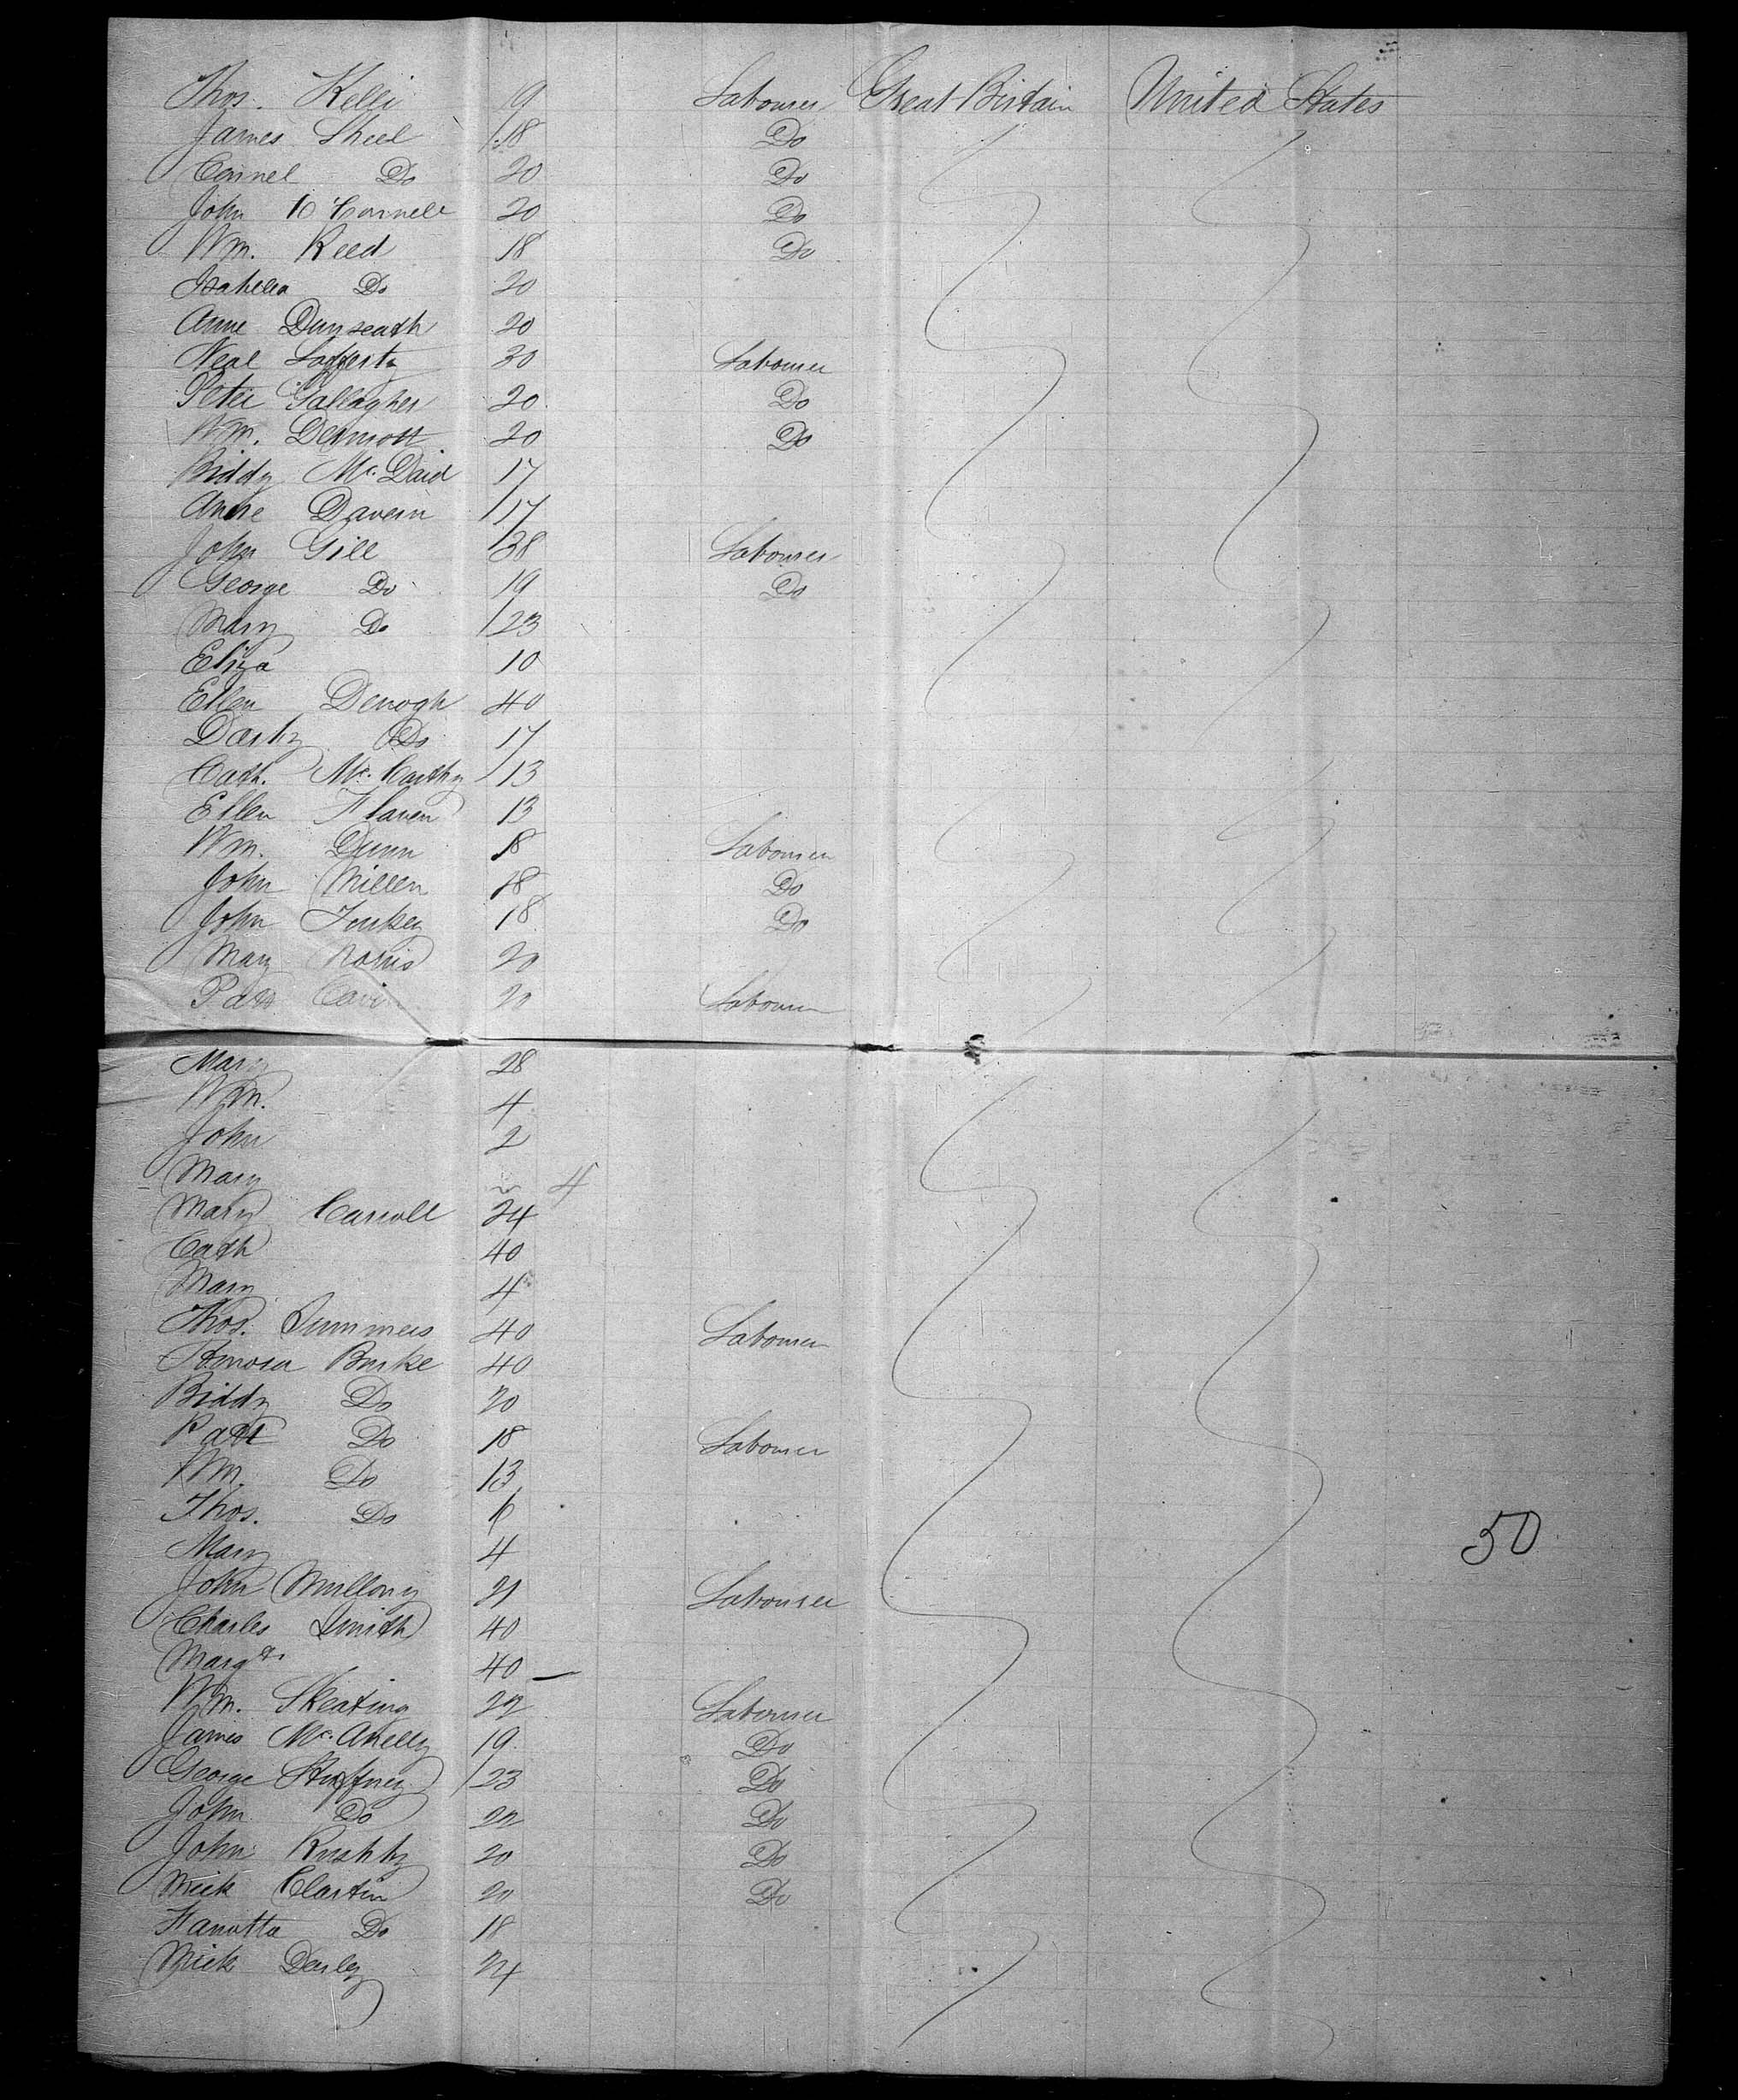 Thos. Kelli 19 Labourer Great Britain United States
James Sheel 18 Do
Connel Do 20 Do
John O'Connell 20 Do
Wm. Reed 18 Do
Isabella Do 20
Anne Dunseath 20
Neal Lafferty 30 Labourer
Peter Gallagher 20 Do
Wm. Dermott 20 Do
Biddy McDaid 17
Anne Davern 17
John Gill 38 Labourer
George Do 19 Do
Mary Do 23
Eliza 10
Ellen Denogh 40
Darby Do 17
Cath. McCarthy 13
Ellen Flaven 13
Wm. Dunn 18 Labourer
John Millen 18 Do
John 18 Do
Mary Norris 20
Patt 20 Labourer
Mary 28
Wm. 4
John 2
Mary 4
Mary Carroll 24
Cath 40
Mary 4
Thos. Summers 40 Labourer
Honora Burke 40
Biddy Do 20
Patt Do 18 Labourer
Wm. Do 13
Thos. Do 6
Mary 4
50
John Mullony 21 Labourer
Charles Smith 40
Margt. 40 —
Wm. Skeating 22 Labourer
James McAnelly 19 Do
George 23 Do
John Do 22 Do
John 20 Do
Mick Clastin 20 Do
Do 18
Mick Darley 24